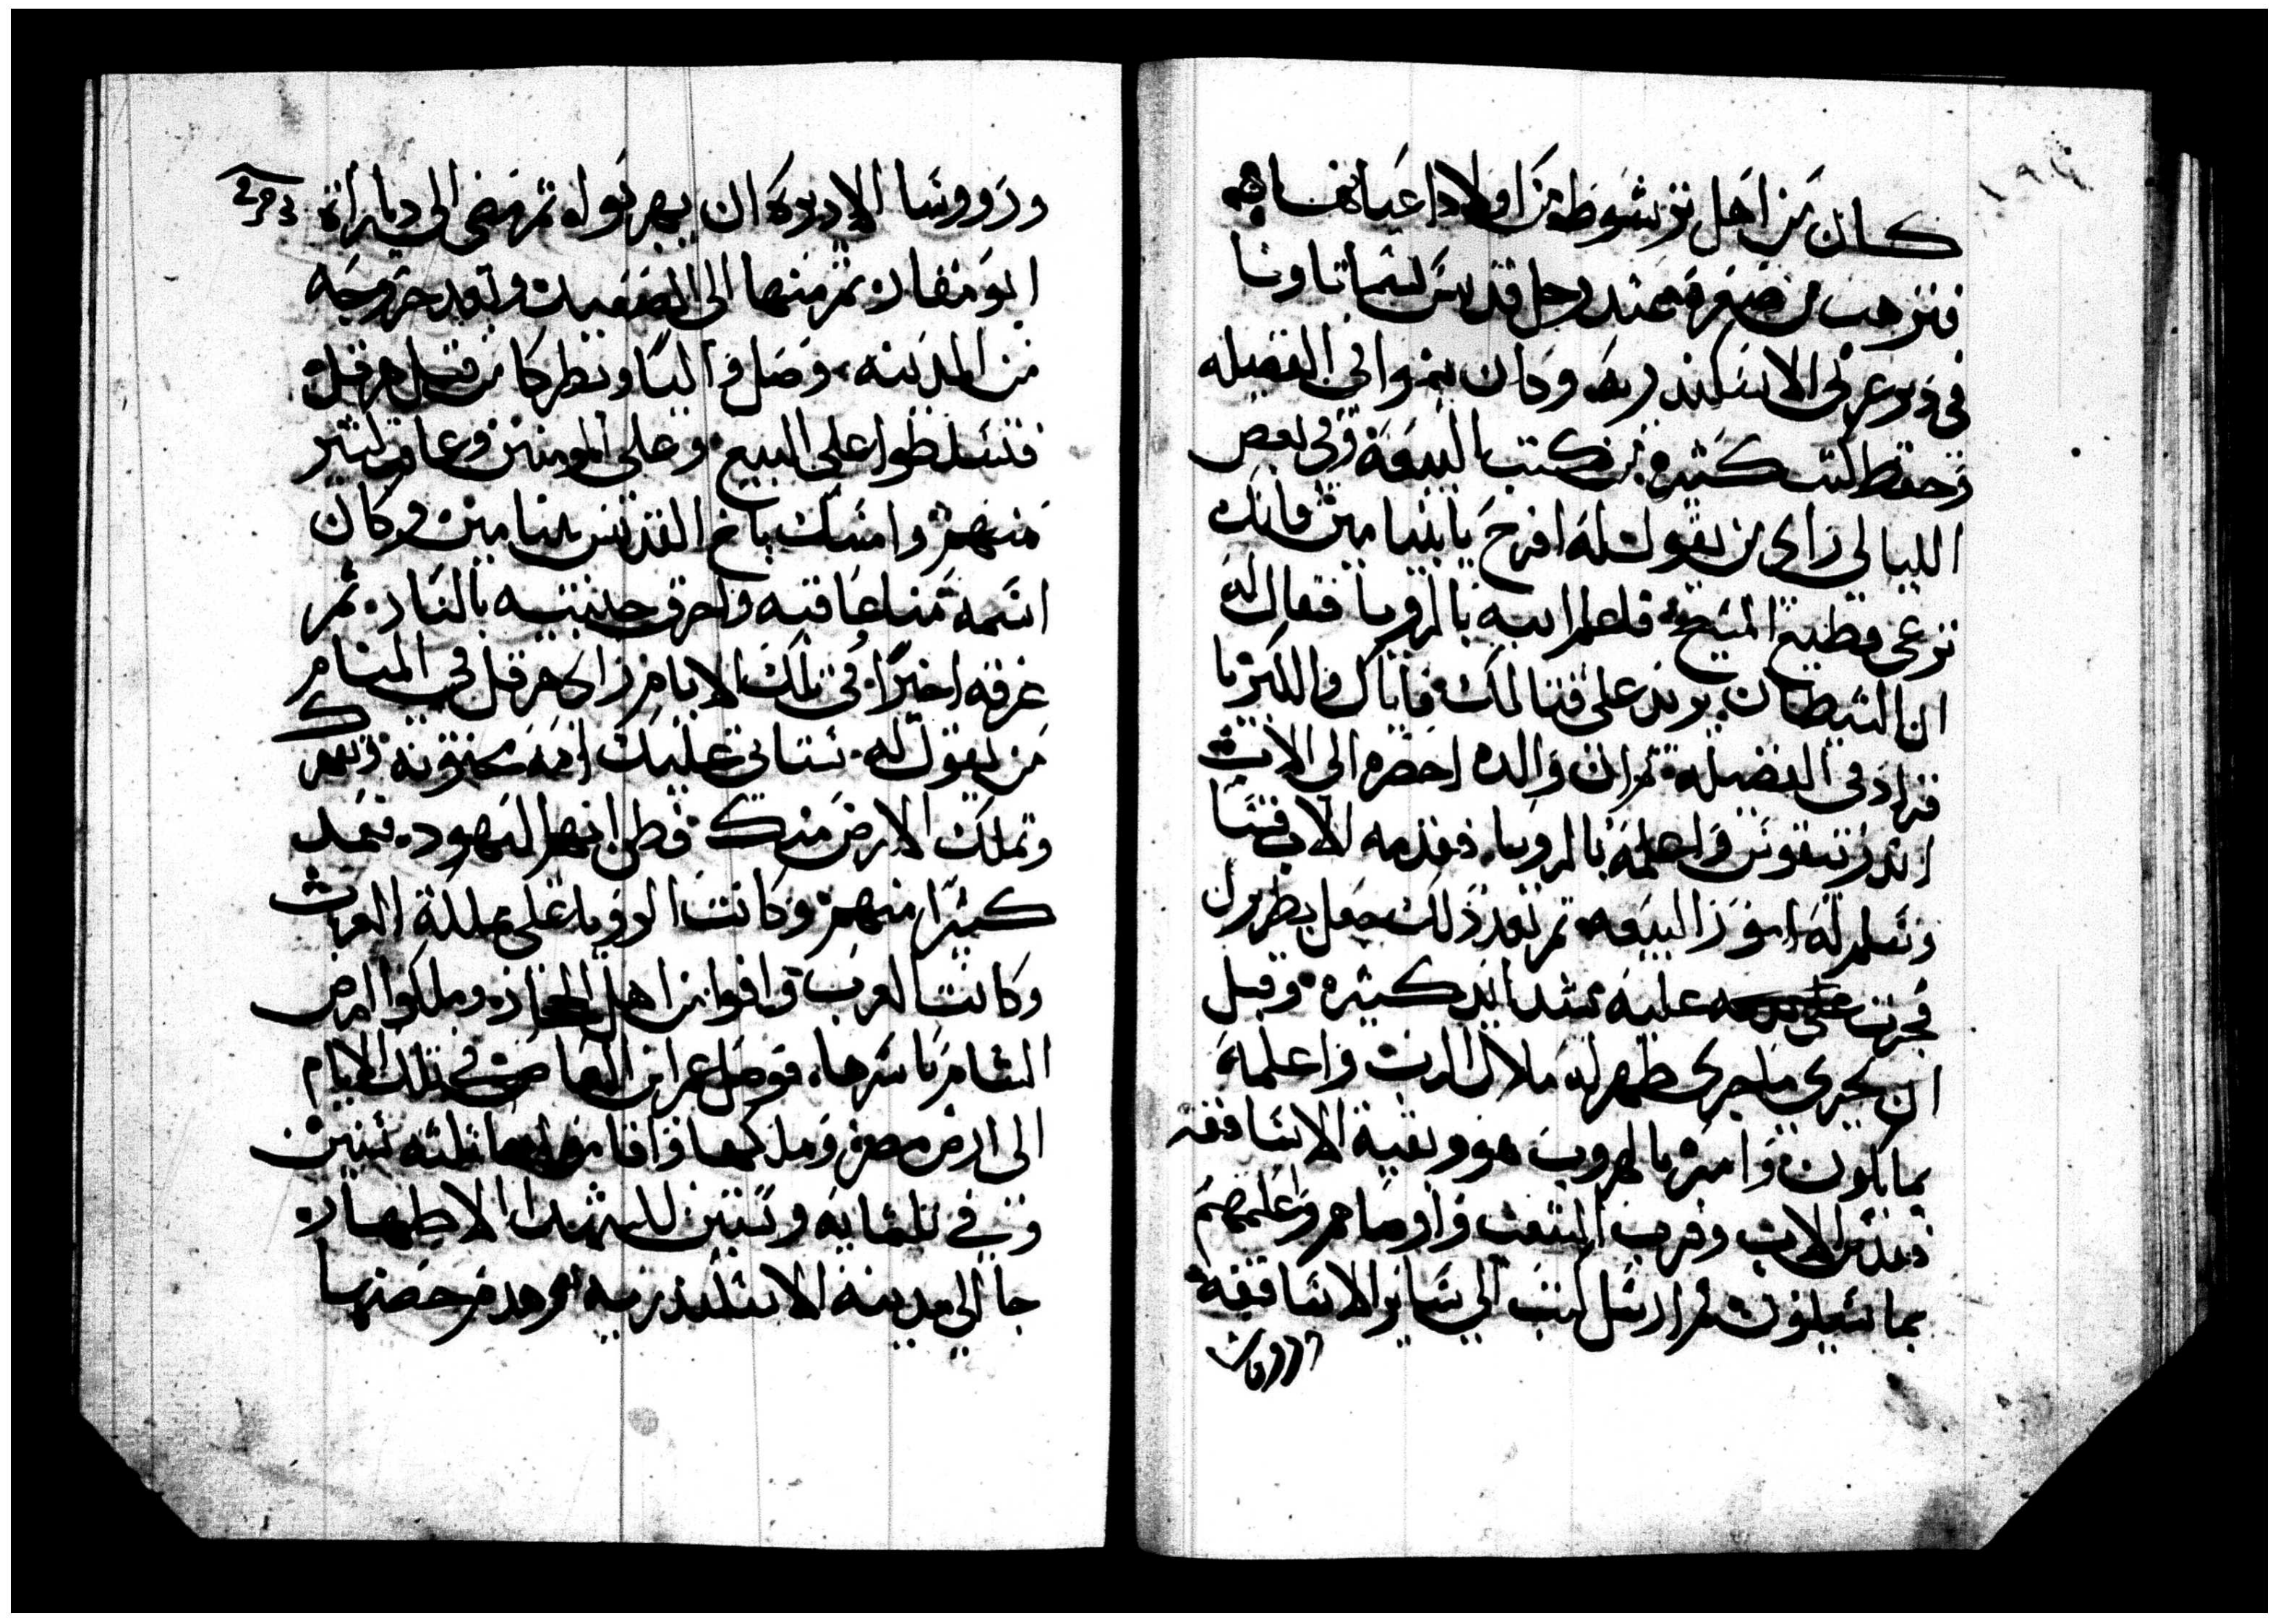 كان من اهل برشوط من اولاد اغيانها
فترهب من صغره عند رجل قديس يسمى تاونا
في دير عربي الاسكندريه وكان ينموا في الفضيله
وحفظ كتب كثيره من كتب البيعه وفي بعض
الليالي راى من يقول له افرح يا بنيامين فانك
ترعى قطيع المسيح فاعلم ابيه بالرويا فقال له
ان الشيطان يريد على قتالك فاياك والكبريا
فزاد في الفضيله ثم ان والده احضره الى الاب
اندرنيقوس واعلمه بالرويا فقدمه الاب قسا
وسلم له امور البيعه ثم بعد ذلك جعل بطريرك
فجرت عليه شدايد كثيره وقبل
ان يجري ما جرى ظهر له ملاك الرب واعلمه
بما يكون وامره بالهروب هو وبقية الاساقفه
فقدس الاب وقرب الشعب واوصاهم واعلمهم
بما يفعلون ثم ارسل كتب الى ساير الاساقفه
وروسا
وروسا الاديره ان يهربوا ثم مضى الى ديارات
ابو مقار ثم منها الى الصعيد وبعد خروجه
من المدينه وصل واليا وبطركا من قبل هرقل
فتسلطوا على البيع وعلى المومنين وعاقب كثير
منهم وامسك باخ القديس بنيامين وكان
اسمه مينا عاقبه واحرق جنبيه بالنار ثم
غرقه اخيرا في تلك الايام راى هرقل في المنام
من يقول له ستاتي عليك امه مختونه وتقهرك
وتملك الارض منك فظن انهم اليهود فعمد
كثيرا منهم وكانت الرويا على مملكة العرب
وكانت العرب وافوا من اهل الحجاز وملكوا ارض
الشام باسرها فوصل عمر ابن العاص في تلك الايام
الى ارض مصر وملكها واقام ثلثه سنين
وفي ثلثمايه وستين للشهدا الاطهار
جا الى مدينة الاسكندريه وهدم حصنها